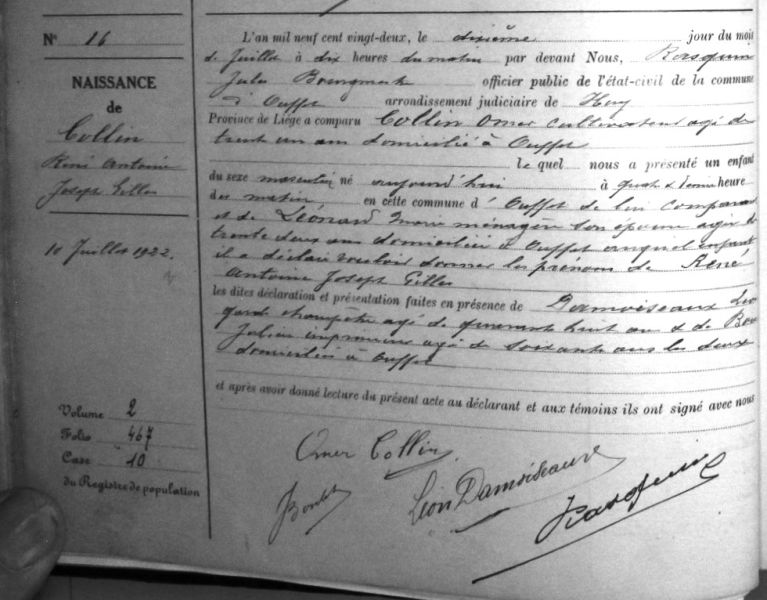 N° 16
NAISSANCE
de
Collin
René Antoine
Joseph Gilles
10 Juillet 1922.
Volume 2
Folio 467
Case 10
du Registre de population
L'an mil neuf cent vingt-deux, le dixième jour du mois
de Juillet à dix heures du matin par devant Nous,
Jules Bourgmestre officier public de l'état-civil de la commune
d'Ouffet arrondissement judiciaire de Huy
Province de Liège a comparu Collin Omer cultivateur agé de
trent un ans domicilié à Ouffet
le quel nous a présenté un enfant
du sexe masculin né aujourd'hui à quatre & demie heure
du matin, en cette commune d'Ouffet de lui comparant
et de Léonard Marie ménagère son épouse agée de
trente deux ans domiciliée à Ouffet auquel enfant
il a déclaré vouloir donner les prénoms de René
Antoine Joseph Gilles
les dites déclaration et présentation faites en présence de Damoiseaux Léon
garde champêtre agé de quarante huit ans & de
Julien agé de soixante ans les deux
domiciliés à Ouffet
et après avoir donné lecture du présent acte au déclarant et aux témoins ils ont signé avec nous
Omer Collin
Léon Damoiseaux